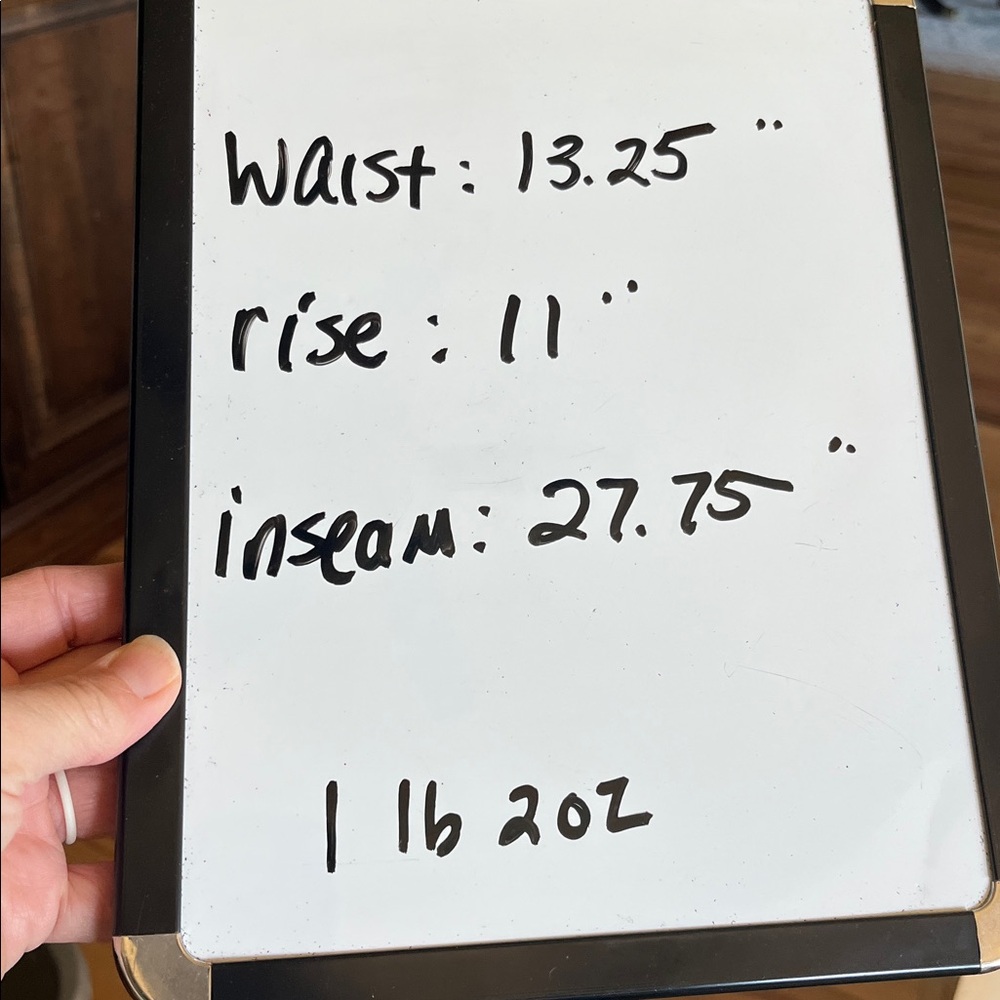 Waist: 13.25"
rise: 11"
inseam: 27.75"
1 lb 2oz